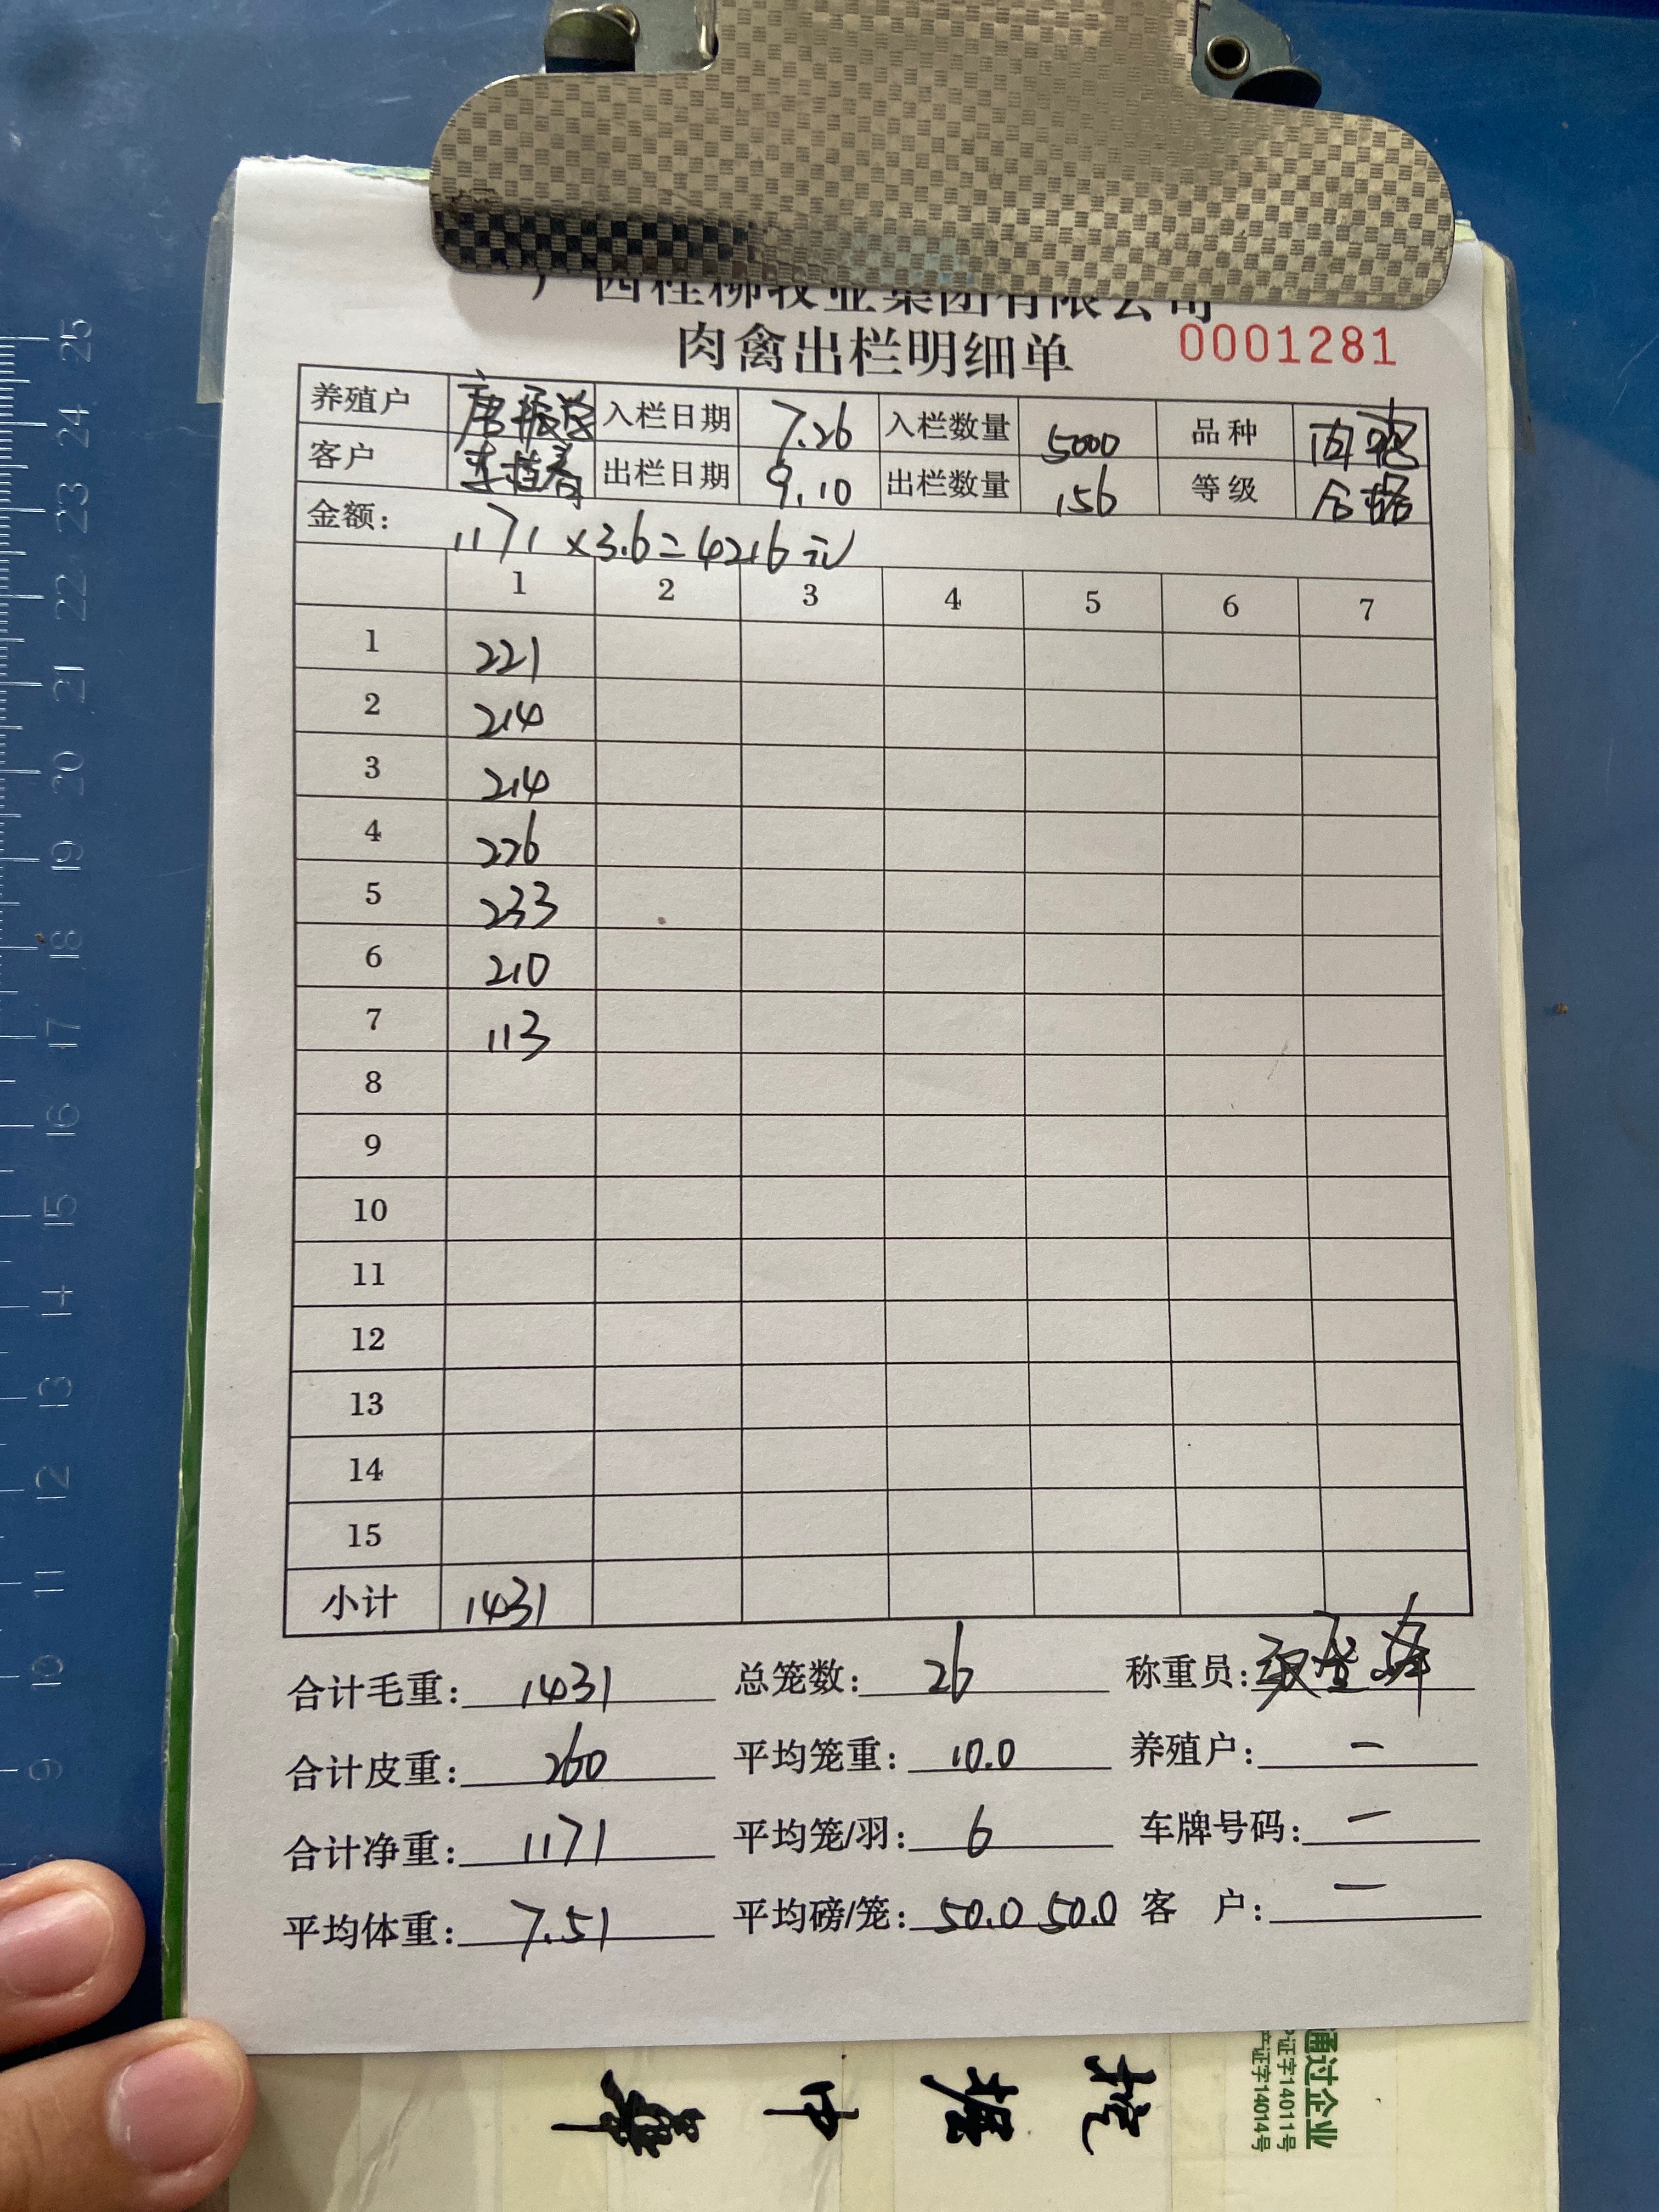 广西桂柳牧业集团有限公司
肉禽出栏明细单 0001281
养殖户 唐振学 入栏日期 7.26 入栏数量 5000 品种 肉鸭
客户 李桂春 出栏日期 9.10 出栏数量 156 等级 合格
金额: 1171×3.6=4216元
1 2 3 4 5 6 7
1 221
2 214
3 214
4 226
5 233
6 210
7 113
8
9
10
11
12
13
14
15
小计 1431
合计毛重: 1431 总笼数: 26 称重员:
合计皮重: 260 平均笼重: 10.0 养殖户: 一
合计净重: 1171 平均笼/羽: 6 车牌号码: 一
平均体重: 7.51 平均磅/笼: 50.0 50.0 客 户: 一
通过企业
证字14011号
证字14014号